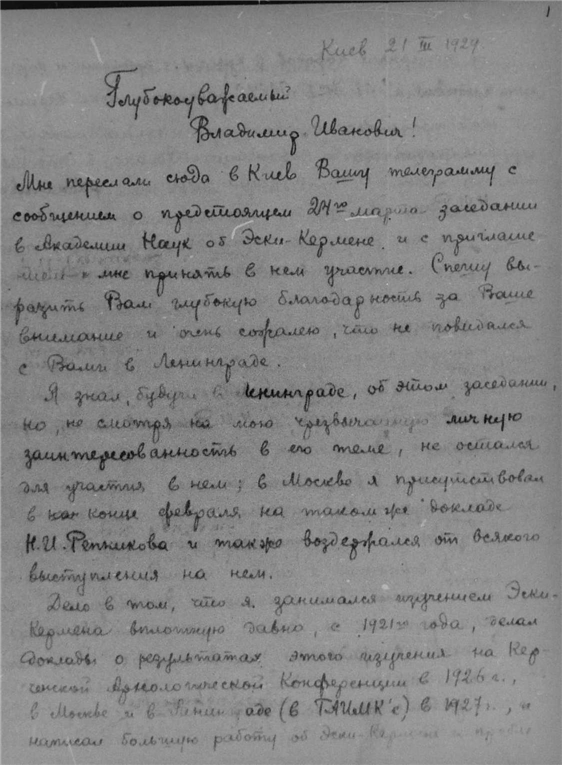 1
Киев 21 III 1929
Глубокоуважаемый
Владимир Иванович!
Мне переслали сюда в Киев Вашу телеграмму с
сообщением о предстоящем 24го марта заседании
в Академии Наук об Эски-Кермене и с приглаше
нием мне принять в нем участие. Спешу вы-
разить Вам глубокую благодарность за Ваше
внимание и очень сожалею, что не повидался
с Вами в Ленинграде.
Я знал, будучи в Ленинграде, об этом заседании,
но, не смотря на мою чрезвычайную личную
заинтересованность в его теме, не остался
для участия в нем; в Москве я присутствовал
в конце февраля на таком же докладе
Н.И. Репникова и также воздержался от всякого
выступления на нем.
Дело в том, что я занимался изучением Эски-
Кермена вплотную давно, с 1921го года, делал
доклады о результатах этого изучения на Кер-
ченской Археологической Конференции в 1926 г.,
в Москве и в Ленинграде (в ГАИМК'е) в 1927 г., и
написал большую работу об Эски-Кермене и